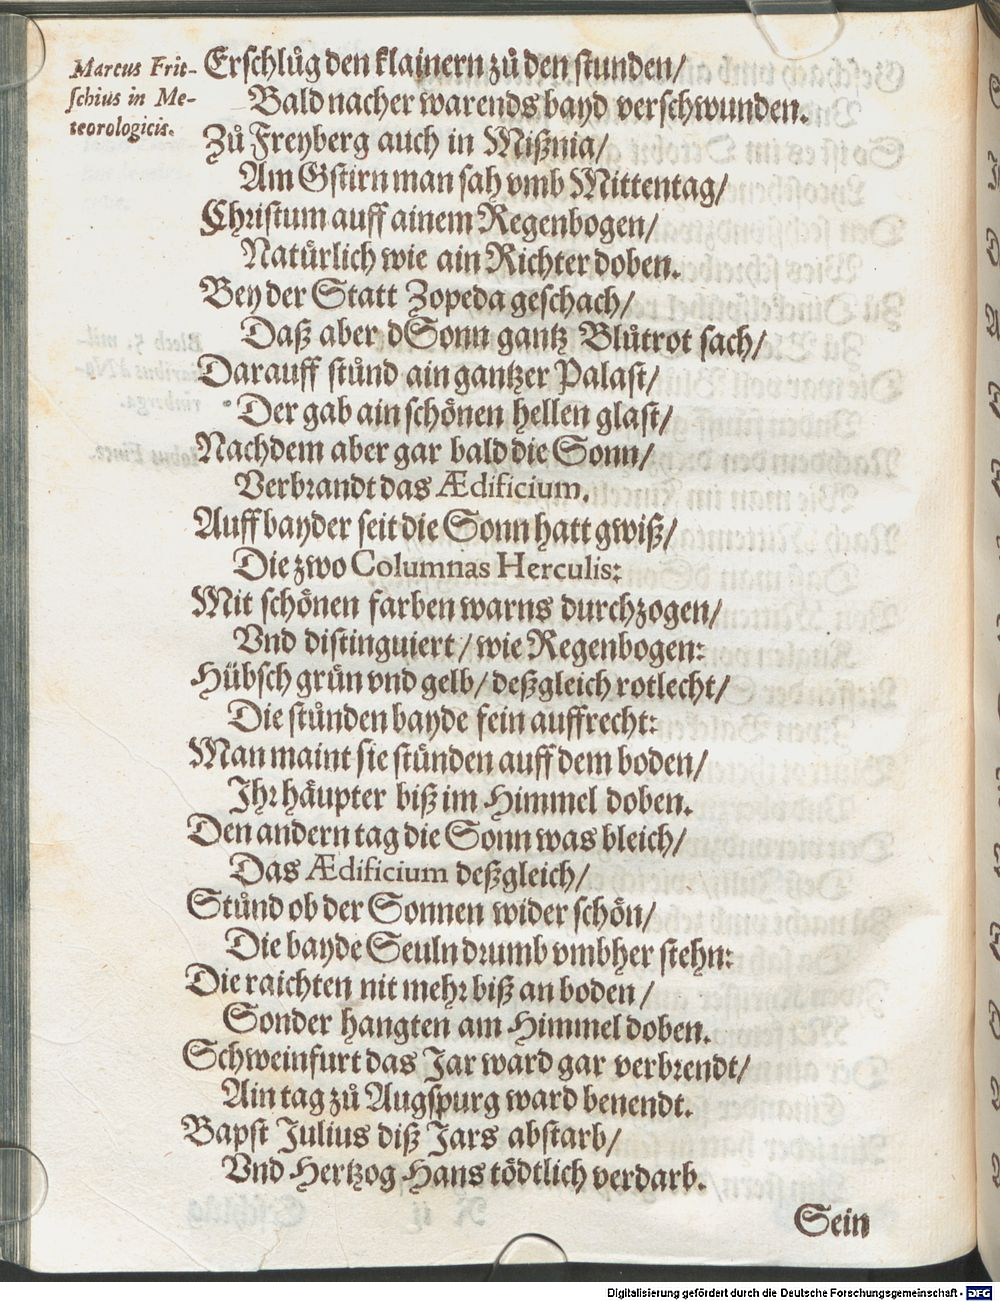 Marcus Frit-
schius in Me-
teorologicis.
Erschlůg den klainern zů den stunden/
Bald nacher warends bayd verschwunden.
Zů Freyberg auch in Mißnia/
Am Gstirn man sah vmb Mittentag/
Christum auff ainem Regenbogen/
Natürlich wie ain Richter doben.
Bey der Statt Zopeda geschach/
Daß aber dSonn gantz Blůtrot sach/
Darauff stůnd ain gantzer Palast/
Der gab ain schönen hellen glast/
Nachdem aber gar bald die Sonn/
Verbrandt das Ædificium.
Auff bayder seit die Sonn hatt gwiß/
Die zwo Columnas Herculis:
Mit schönen farben warns durchzogen/
Vnd distinguiert/ wie Regenbogen:
Hübsch grün vnd gelb/ deßgleich rotlecht/
Die stůnden bayde fein auffrecht:
Man maint sie stůnden auff dem boden/
Ihr häupter biß im Himmel doben.
Den andern tag die Sonn was bleich/
Das Ædificium deßgleich/
Stůnd ob der Sonnen wider schön/
Die bayde Seuln drumb vmbher stehn:
Die raichten nit mehr biß an boden/
Sonder hangten am Himmel doben.
Schweinfurt das Jar ward gar verbrendt/
Ain tag zů Augspurg ward benendt.
Bapst Julius diß Jars abstarb/
Vnd Hertzog Hans tödtlich verdarb.
Sein
Digitalisierung gefördert durch die Deutsche Forschungsgemeinschaft - DFG